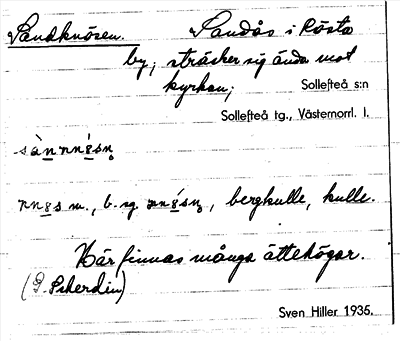 Sandknösen. Sandås i Rösta
by; sträcker sig ända mot
kyrkan; Sollefteå s:n
Sollefteå tg., Västernorrl. l.
m., b. sg. , bergkulle, kulle.
Här finnas många ättehögar.
Sven Hiller 1935.